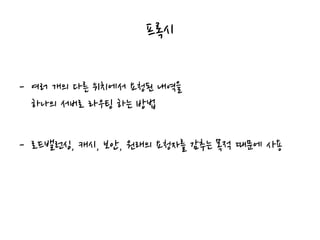 프록시
- 여러 개의 다른 위치에서 요청된 내역을
하나의 서버로 라우팅 하는 방법
- 로드밸런싱, 캐시, 보안, 원래의 요청자를 감추는 목적 때문에 사용